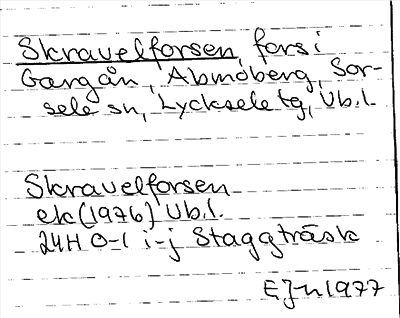 Skravelforsen, fors i
Gargån, Abmoberg, Sor-
sele sn, Lycksele tg, Vb.l.
Skravelforsen
ek (1976) Vb.l.
24H 0-1 i-j Staggträsk
EJ-n 1977